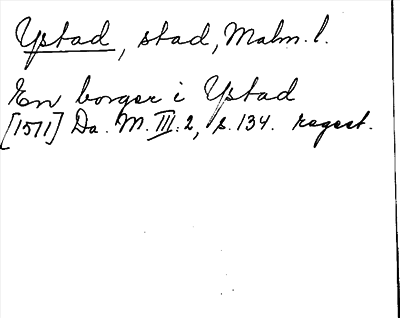 Ystad, stad, Malm. l.
En borger i Ystad
[1511] Da. M. III. 2, s. 134. regest.